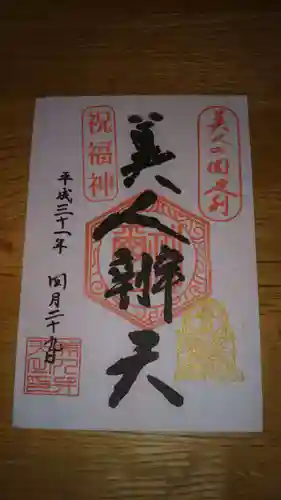 美人の国足利
美人辨天
祝福神
平成三十一年 四月二十九日